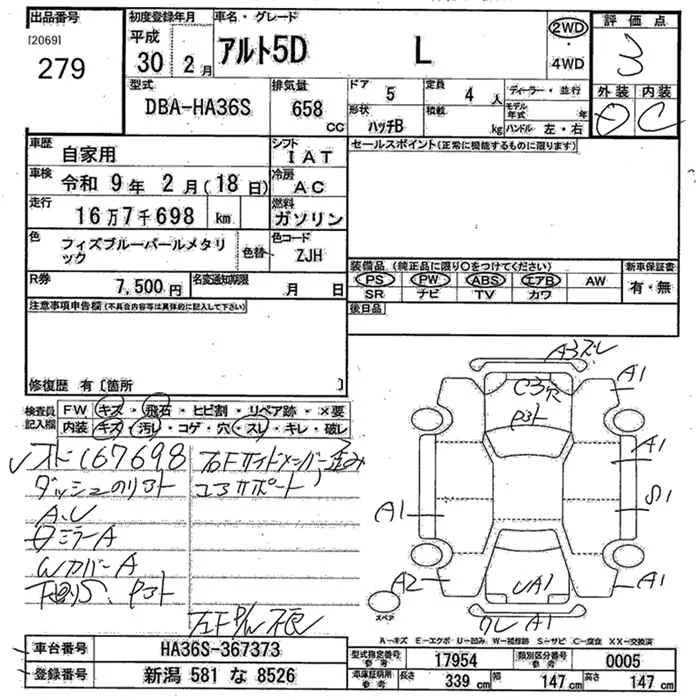 出品番号
[2069]
279
初度登録年月
平成
30 2月
車名・グレード
アルト5D L
2WD
4WD
評価点
3
外装 内装
D C
型式
DBA-HA36S
排気量
658
CC
ドア
5
定員
4人
ディーラー・並行
形状
ハッチB
積載
kg
モデル年式 年
ハンドル 左・右
車歴
自家用
シフト
IAT
車検
令和 9年 2月(18日)
冷房
AC
走行
16万7千698 km
燃料
ガソリン
色
フィズブルーパールメタリック
色替
色コード
ZJH
R券
7,500円
名変通知期限
月 日
セールスポイント(正常に機能するものに限ります)
装備品 (純正品に限り〇をつけてください)
新車保証書
PS PW ABS エアB AW
SR ナビ TV カワ
有・無
後日品
注意事項申告欄(不具合内容等は具体的に記入して下さい)
修復歴 有〔箇所 〕
検査員記入欄
FW キズ・飛石・ヒビ割・リペア跡・×要
内装 キズ・汚レ・コゲ・穴・スレ・キレ・破レ
167698
ダッシュ
A.U
ミラーA
WカバーA
コアサポート
A3ズレ
C3穴
A1
A1
S1
A1
A1
A2
UA1
A1
スペア
A-キズ E-エクボ U-凹み W-補修跡 S-サビ C-腐食 XX-交換済
車台番号
HA36S-367373
登録番号
新潟 581 な 8526
型式指定番号
参考
17954
類別区分番号
参考
0005
車庫証明用
参考
長さ 339cm
幅 147cm
高さ 147cm